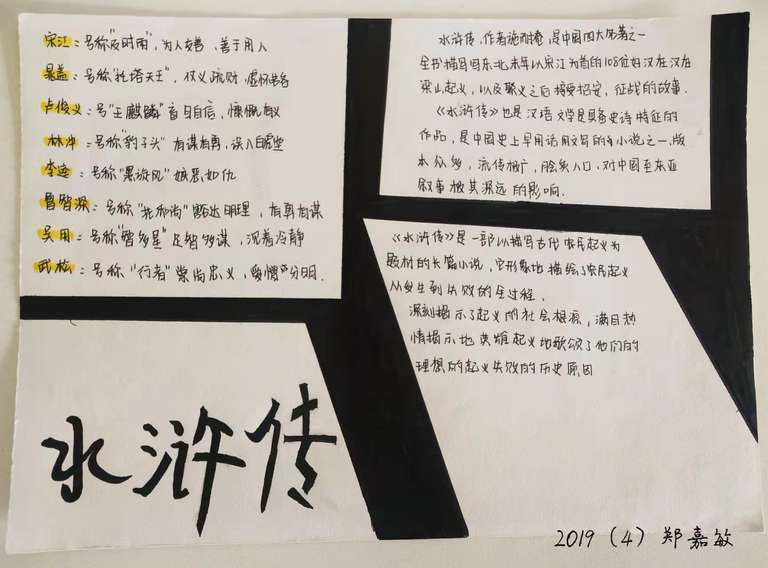 宋江：号称"及时雨"，为人友善、善于用人
晁盖：号称"托塔天王"，仗义疏财
卢俊义：号"玉麒麟"盲目自信，慷慨有义
林冲：号称"豹子头"有谋有勇，误入白虎堂
李逵：号称"黑旋风"嫉恶如仇
鲁智深：号称"花和尚"豁达明理，有勇有谋
吴用：号称"智多星"足智多谋，沉着冷静
武松：号称"行者"崇尚忠义，爱憎分明.
水浒传，作者施耐庵，是中国四大名著之一
全书描写了宋北末年以宋江为首的108位好汉在汉在
梁山起义，以及聚义之后接受招安，征战的故事.
《水浒传》也是汉语文学是具备史诗特征的
作品，是中国史上早用话用文写的小说之一，版
本众多，流传极广，脍炙人口，对中国至东亚
叙事极其深远的影响.
《水浒传》是一部以描写古代农民起义为
题材的长篇小说，它形象地描绘了农民起义
从发生到失败的全过程.
深刻揭示了起义的社会根源，满目热
情揭示地英雄起义地歌颂了他们的
理想的起义失败的历史原因
水浒传
2019（4）郑嘉敏